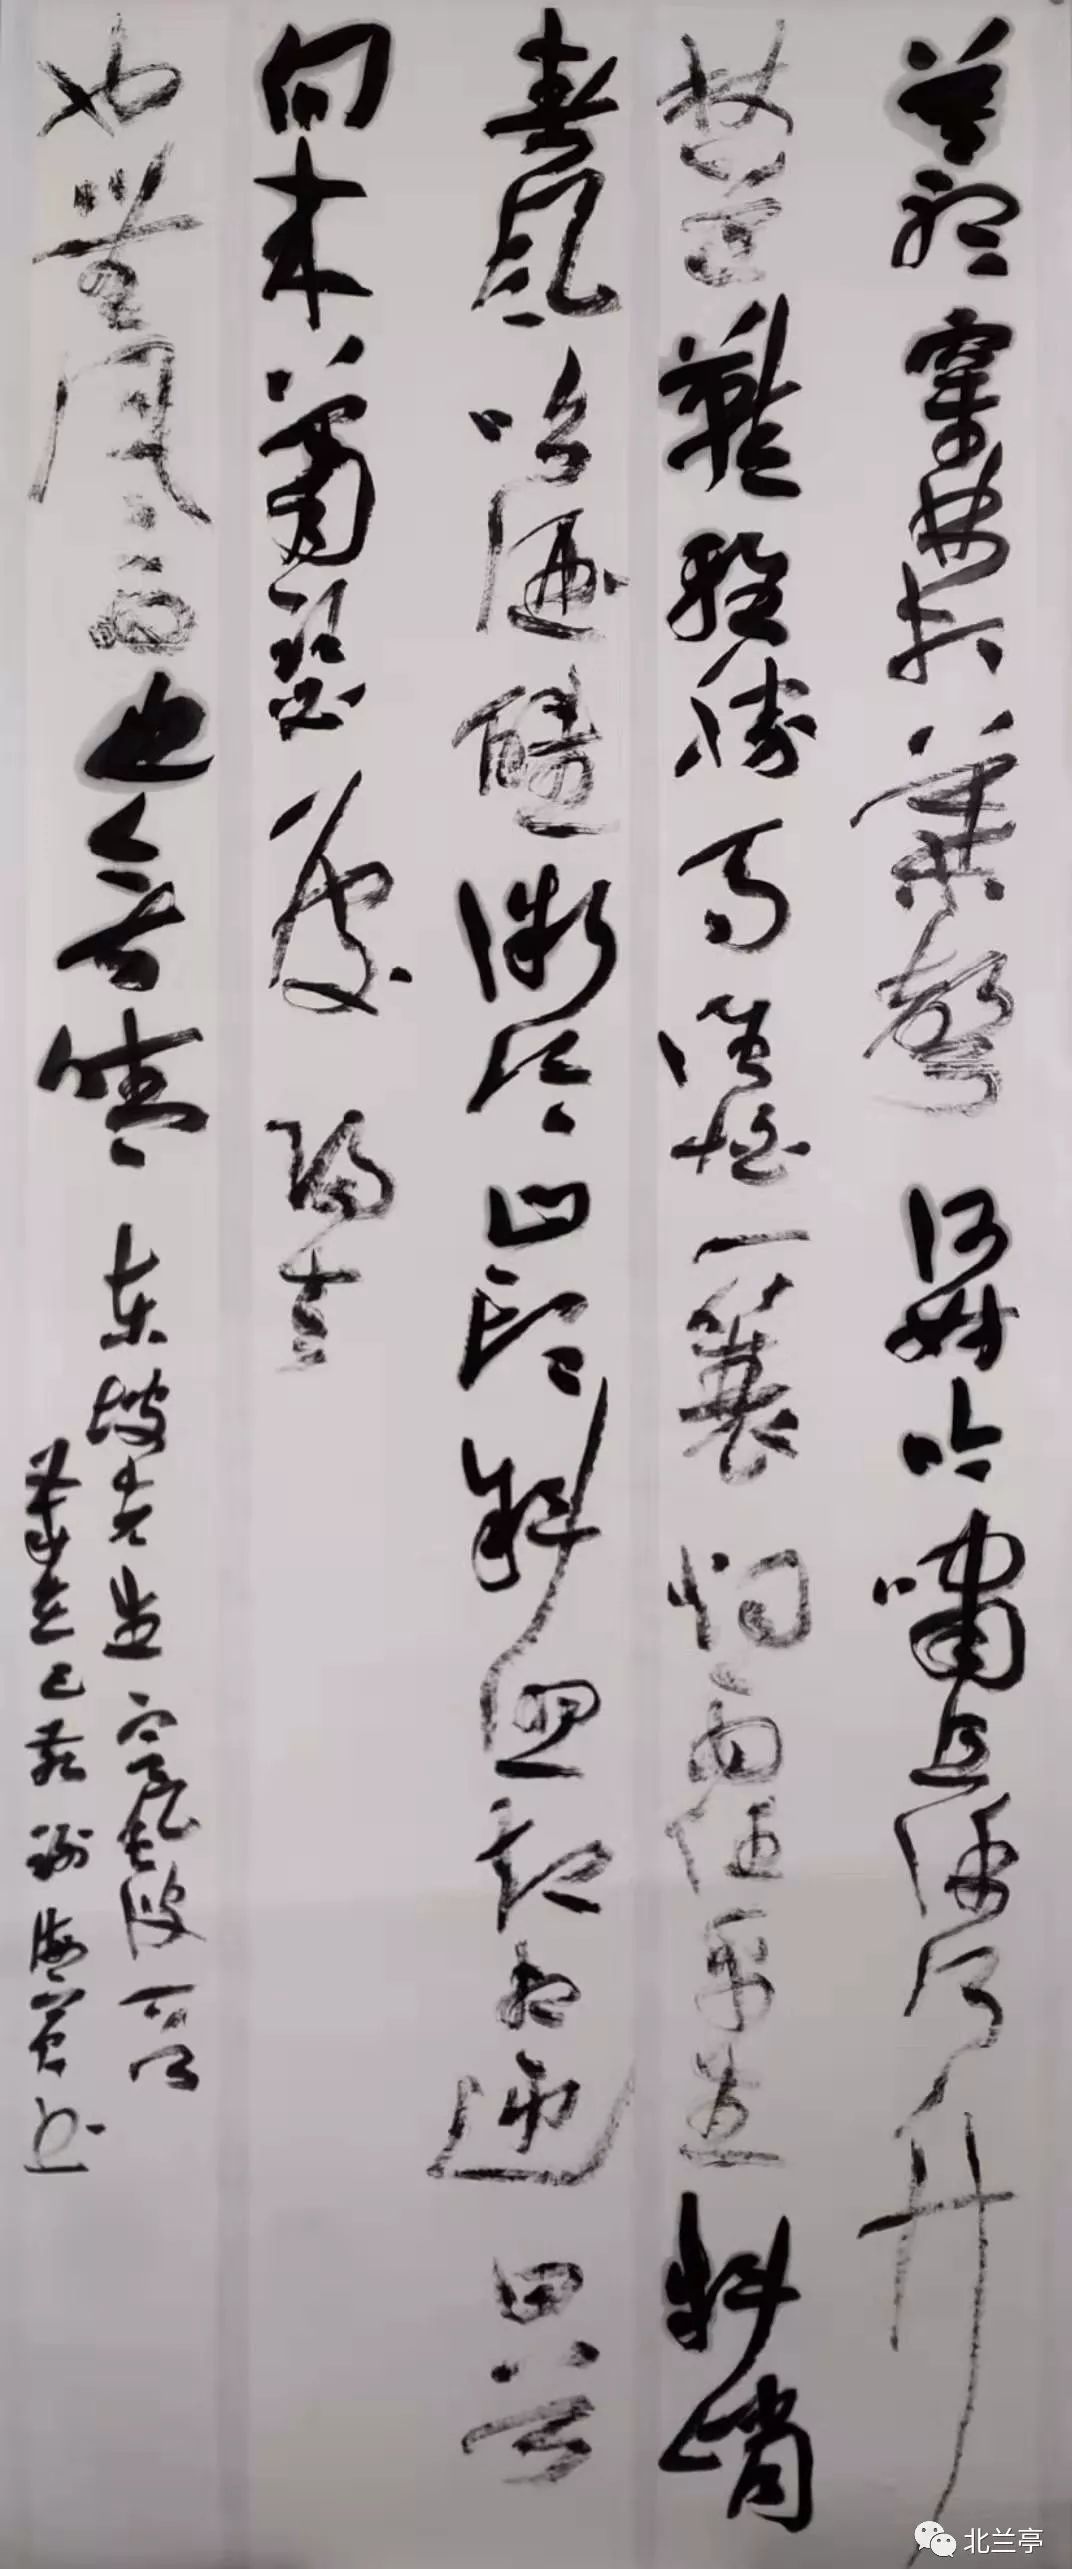 莫聽穿林打葉聲何妨吟嘯且徐行竹
杖芒鞋輕勝馬誰怕一蓑烟雨任平生料峭
春風吹酒醒微冷山頭斜照却相迎回首
向来蕭瑟處歸去
也無風雨也無晴东坡先生定風波